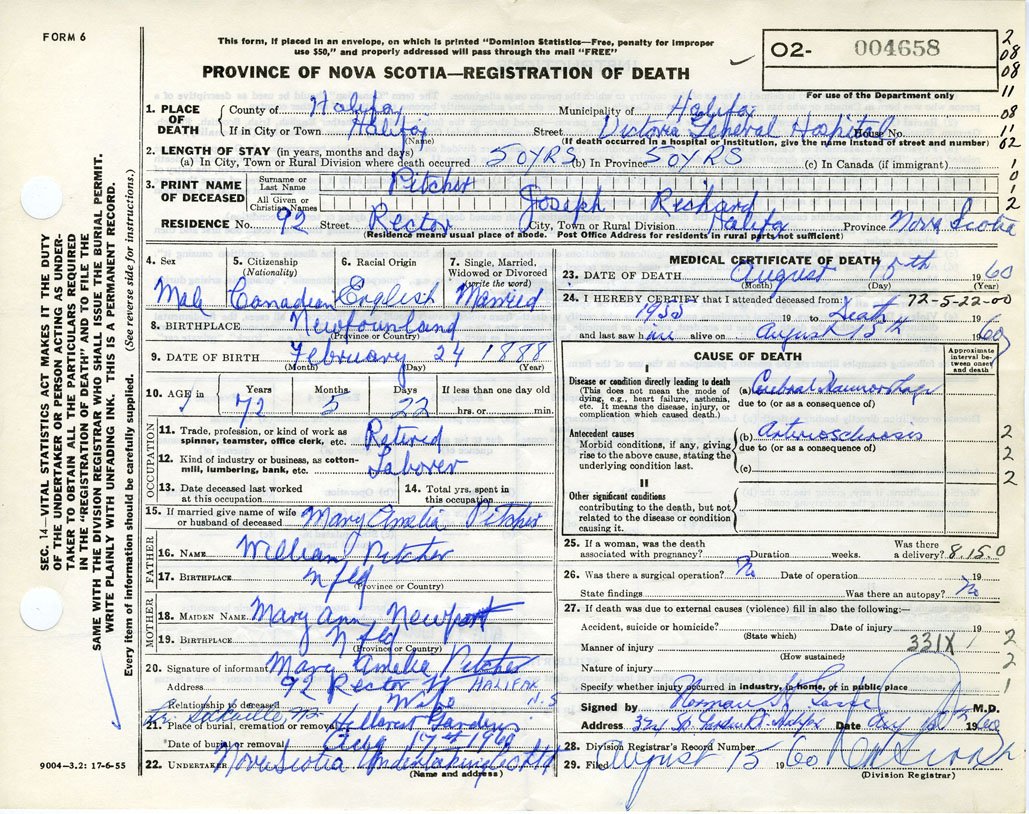 FORM 6
This form, if placed in an envelope, on which is printed "Dominion Statistics—Free, penalty for improper
use $50," and properly addressed will pass through the mail "FREE"
PROVINCE OF NOVA SCOTIA—REGISTRATION OF DEATH
O2- 004658
For use of the Department only
2
08
08
11
08
11
62
1
0
1
2
SEC. 14—VITAL STATISTICS ACT MAKES IT THE DUTY
OF THE UNDERTAKER OR PERSON ACTING AS UNDER-
TAKER TO OBTAIN ALL THE PARTICULARS REQUIRED
IN THE "REGISTRATION OF DEATH" AND TO FILE THE
SAME WITH THE DIVISION REGISTRAR WHO SHALL ISSUE THE BURIAL PERMIT.
WRITE PLAINLY WITH UNFADING INK. THIS IS A PERMANENT RECORD.
Every item of information should be carefully supplied. (See reverse side for instructions.)
1. PLACE OF DEATH County of Halifax Municipality of Halifax
If in City or Town Halifax (Name) Street Victoria General Hospital House No.
(If death occurred in a hospital or institution, give the name instead of street and number)
2. LENGTH OF STAY (in years, months and days)
(a) In City, Town or Rural Division where death occurred 50 YRS (b) In Province 50 YRS (c) In Canada (if immigrant)
3. PRINT NAME OF DECEASED Surname or Last Name Pitcher
All Given or Christian Names Joseph Richard
RESIDENCE No. 92 Street Rector City, Town or Rural Division Halifax Province Nova Scotia
(Residence means usual place of abode. Post Office Address for residents in rural parts not sufficient)
4. Sex 5. Citizenship (Nationality) 6. Racial Origin 7. Single, Married, Widowed or Divorced (write the word)
Male Canadian English Married
8. BIRTHPLACE Newfoundland
(Province or Country)
9. DATE OF BIRTH February 24 1888
(Month) (Day) (Year)
10. AGE in Years Months Days If less than one day old
72 5 22 hrs. or min.
OCCUPATION
11. Trade, profession, or kind of work as spinner, teamster, office clerk, etc. Retired
12. Kind of industry or business, as cotton-mill, lumbering, bank, etc. Laborer
13. Date deceased last worked at this occupation
14. Total yrs. spent in this occupation
15. If married give name of wife or husband of deceased Mary Amelia Pitcher
FATHER
16. NAME William Pitcher
17. BIRTHPLACE nfld
(Province or Country)
MOTHER
18. MAIDEN NAME Mary Ann Newport
19. BIRTHPLACE Nfld
(Province or Country)
20. Signature of informant Mary Amelia Pitcher
Address 92 Rector St HALIFAX N.S
Relationship to deceased Wife
Sackville
21. Place of burial, cremation or removal Hillcrest Gardens
Date of burial or removal Aug 17th 1960
22. UNDERTAKER Nova Scotia Undertaking Co Ltd
(Name and address)
9004—3.2: 17-6-55
MEDICAL CERTIFICATE OF DEATH
23. DATE OF DEATH August 15th 1960
(Month) (Day) (Year)
24. I HEREBY CERTIFY that I attended deceased from: 72-5-22-00
1955 19 to Death 19
and last saw him alive on August 15th 1960
CAUSE OF DEATH
Approximate interval between onset and death
I
Disease or condition directly leading to death
(This does not mean the mode of dying, e.g., heart failure, asthenia, etc. It means the disease, injury, or complication which caused death.)
(a) Cerebral Haemorrhage
due to (or as a consequence of)
Antecedent causes
Morbid conditions, if any, giving rise to the above cause, stating the underlying condition last.
(b) Arteriosclerosis
due to (or as a consequence of)
(c)
2
2
2
II
Other significant conditions
contributing to the death, but not related to the disease or condition causing it.
25. If a woman, was the death associated with pregnancy? Duration weeks. Was there a delivery? 8.15.0
26. Was there a surgical operation? No Date of operation 19
State findings Was there an autopsy? No
27. If death was due to external causes (violence) fill in also the following:—
Accident, suicide or homicide? Date of injury 19
(State which)
Manner of injury 331X
(How sustained)
Nature of injury
2
2
1
Specify whether injury occurred in industry, in home, or in public place
Signed by Norman M.D.
Address Halifax Date Aug 1960
28. Division Registrar's Record Number
29. Filed August 15 1960
(Division Registrar)